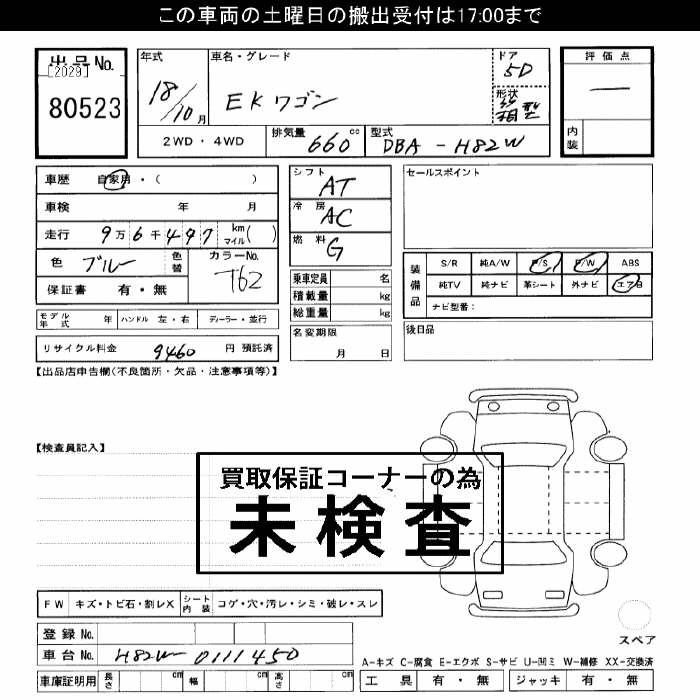 この車両の土曜日の搬出受付は17:00まで
出品No.
[2029]
80523
年式 18/10月
車名・グレード EKワゴン
ドア 5D
形状 箱型
評価点 —
内装
2WD・4WD
排気量 660 cc
型式 DBA-H82W
車歴 自家用・( )
車検 年 月
走行 9万6千497 km マイル( )
色 ブルー 色替
カラーNo. T62
保証書 有・無
シフト AT
冷房 AC
燃料 G
乗車定員 名
積載量 kg
総重量 kg
セールスポイント
装備品
S/R 純A/W P/S P/W ABS
純TV 純ナビ 革シート 外ナビ エアB
ナビ型番:
モデル年式 年 ハンドル 左・右 ディーラー・並行
名変期限 月 日
後日品
リサイクル料金 9460 円 預託済
【出品店申告欄(不良箇所・欠品・注意事項等)】
【検査員記入】
買取保証コーナーの為
未検査
FW キズ・トビ石・割レX シート内装 コゲ・穴・汚レ・シミ・破レ・スレ
登録No.
車台No. H82W-0111450
車庫証明用 長さ cm 幅 cm 高さ cm
スペア
A-キズ C-腐食 E-エクボ S-サビ U-凹ミ W-補修 XX-交換済
工具 有・無 ジャッキ 有・無